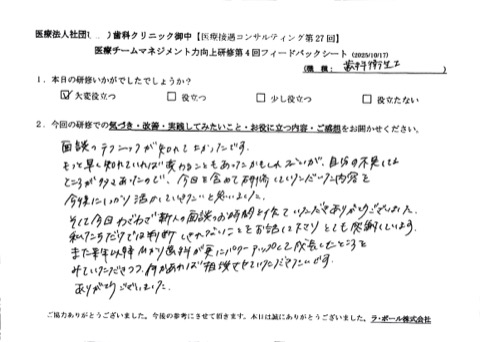 医療法人社団（　　）歯科クリニック御中【医療接遇コンサルティング第27回】
医療チームマネジメント力向上研修第4回フィードバックシート（2025/10/17）
（職種：歯科衛生士
1．本日の研修いかがでしたでしょうか？
☑大変役立つ　□役立つ　□少し役立つ　□役立たない
2．今回の研修での気づき・改善・実践してみたいこと・お役に立つ内容・ご感想をお聞かせください。
面談のテクニックが知れてよかったです。
もっと早く知れていれば変わることもあったかもしれないが、自分の不足してる
ところが多々あったので、今日を含めて研修していただいた内容を
今後にしっかり活かしていきたいと思いました。
そして今日わざわざ新人の面談のお時間を作っていただきありがとうございました。
私たちだけでは判断しきれないことをお話しして下さりとても感謝しています。
また来年以降 歯科が更にパワーアップして成長したところを
みていただきつつ、何かあれば相談させていただきたいです。
ありがとうございました。
ご協力ありがとうございました。今後の参考にさせて頂きます。本日は誠にありがとうございました。ラ・ポール株式会社